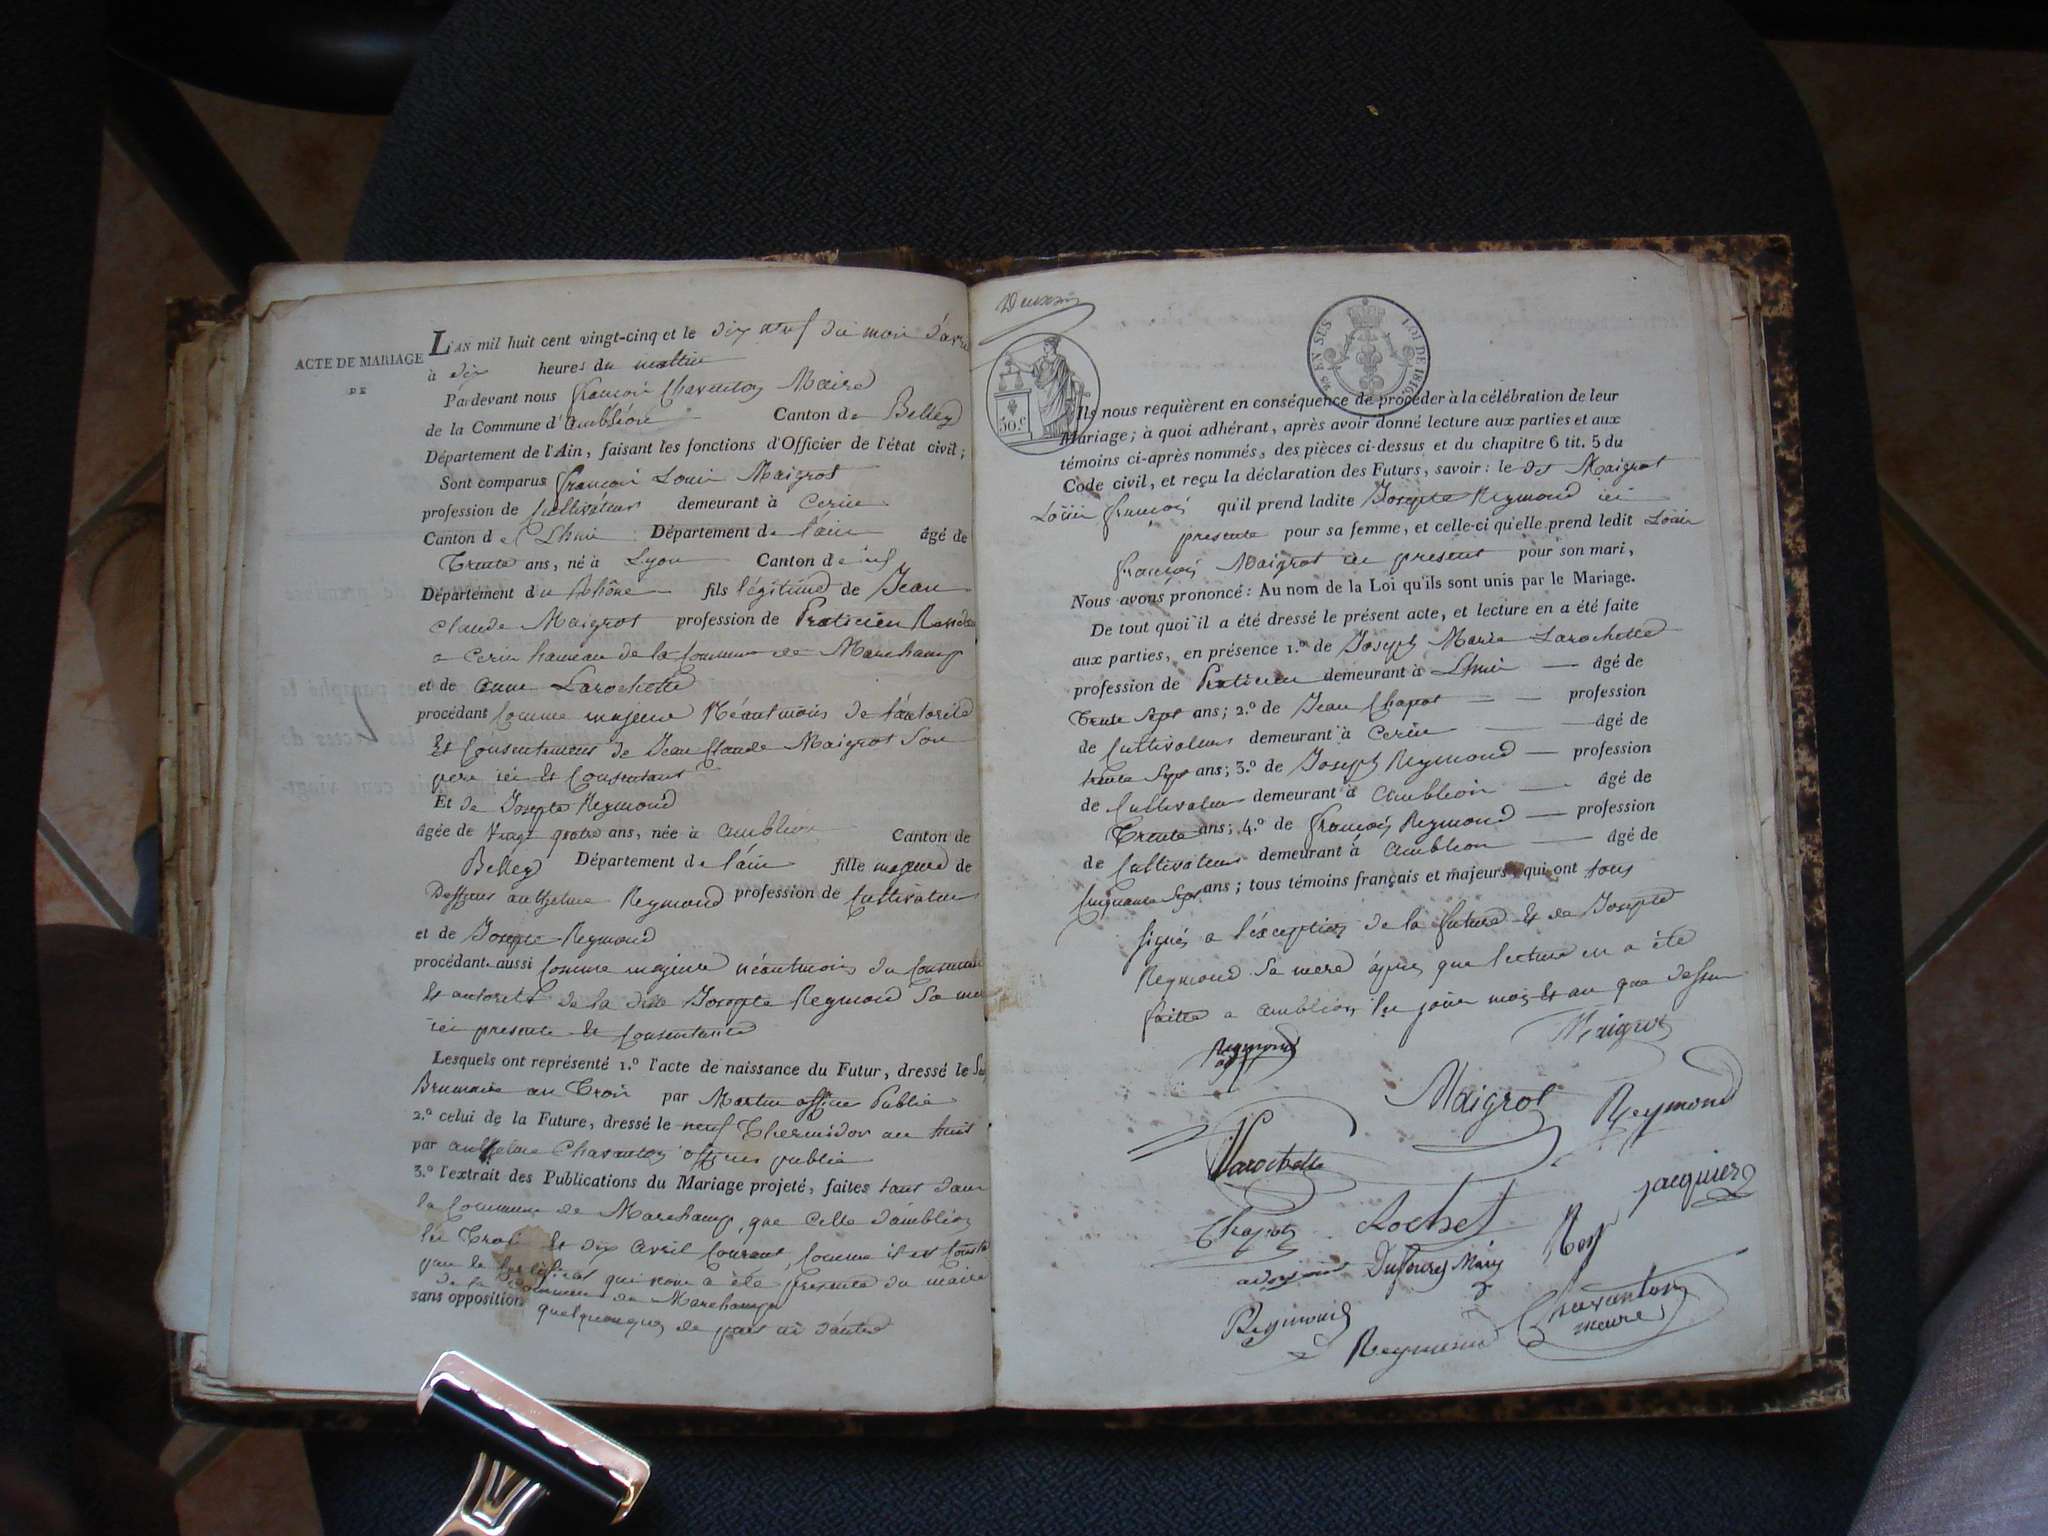 ACTE DE MARIAGE
DE
L'AN mil huit cent vingt-cinq et le dix neuf du mois d'avril
à dix heures du matin
Pardevant nous françois Chavanton Maire
de la Commune d'ambléon Canton de Belley
Département de l'Ain, faisant les fonctions d'Officier de l'état civil;
Sont comparus françois Louis Maigrot
profession de Cultivateur demeurant à Cerin
Canton de Lhui Département de l'ain âgé de
Trente ans, né à Lyon Canton de
Département du Rhône fils légitime de Jean
claude Maigrot profession de Praticien
a Cerin hameau de la Commune de Marchamp
et de anne Larochette
procédant Comme majeur Néantmois de l'autorité
Et Consentement de Jean Claude Maigrot Son
pere ici Et Consentant
Et de Josepte Reymond
âgée de Vingt quatre ans, née à ambléon Canton de
Belley Département de l'ain fille majeure de
anthelme Reymond profession de Cultivateur
et de Josepte Reymond
procédant aussi Comme majeure néantmois du
Et autorité de la dite Josepte Reymond Sa mere
ici presente Et Consentante
Lesquels ont représenté 1.º l'acte de naissance du Futur, dressé le
Brumaire an Trois par Martin officier Public
2.º celui de la Future, dressé le neuf Thermidor an huit
par anthelme Chavanton officier public
3.º l'extrait des Publications du Mariage projeté, faites tant dans
la Commune de Marchamp, que Celle d'ambléon
les Trois Et dix avril Courant, Comme il est
par le qui nous a été presenté du maire
de la Commune de Marchamp
sans opposition quelquonque de part ni d'autre
50.c
LOI DE 1816.
Ils nous requièrent en conséquence de procéder à la célébration de leur
Mariage; à quoi adhérant, après avoir donné lecture aux parties et aux
témoins ci-après nommés, des pièces ci-dessus et du chapitre 6 tit. 5 du
Code civil, et reçu la déclaration des Futurs, savoir: le dit Maigrot
Louis françois qu'il prend ladite Josepte Reymond ici
presente pour sa femme, et celle-ci qu'elle prend ledit Louis
françois Maigrot ici present pour son mari,
Nous avons prononcé: Au nom de la Loi qu'ils sont unis par le Mariage.
De tout quoi il a été dressé le présent acte, et lecture en a été faite
aux parties, en présence 1.º de Joseph Marie Larochette
profession de Praticien demeurant à Lhui âgé de
Trente Sept ans; 2.º de Jean Chapot profession
de Cultivateur demeurant à Cerin âgé de
trente Sept ans; 3.º de Joseph Reymond profession
de Cultivateur demeurant à ambléon âgé de
Trente ans; 4.º de françois Reymond profession
de Cultivateur demeurant à ambléon âgé de
Cinquante Sept ans; tous témoins français et majeurs qui ont tous
signés a l'exception de la future Et de Josepte
Reymond Sa mere après que lecture en a été
faite a ambléon les jour mois Et an que dessus
Reymond
Maigrot
Maigrot Reymond
Larochette
jacquier
Chapot Rochet Rey
Chavanton
maire
Reymond
Reymond